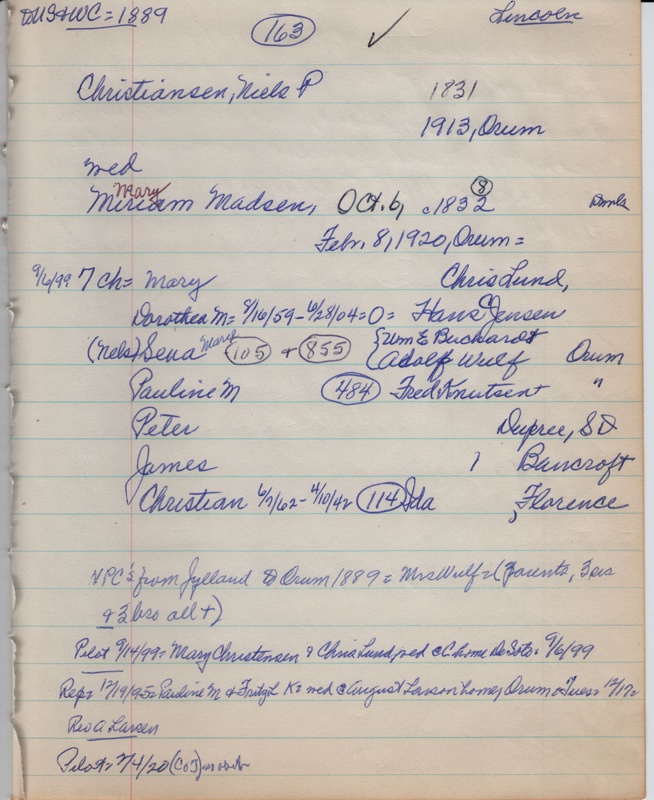 to US & WC = 1889 163 ✓ Lincoln
Christiansen, Niels P 1831
1913, Orum
wed
Miriam Mary Madsen, Oct. 6, c1832 8
Febr. 8, 1920, Orum =
9/6/99 7 ch = Mary Chris Lund,
Dorothea M = 8/16/59 - 6/28/04 = 0 = Hans C Jensen
(Nels) Sena Marie 105 + 855 {Wm E Buchardt
Adolf Wulf Orum
Pauline M 484 Fred Knutsent "
Peter Dupree, SD
James Bancroft
Christian 6/7/62 - 4/10/42 114 Ida , Florence
NPC's from Jylland to Orum 1889 = Mrs Wulf = (parents, 3 sis
& 3 bro all +)
Pilot 9/14/99 = Mary Christensen & Chris Lund, wed @ C home De Soto 9/6/99
Rep = 12/19/95 = Pauline M & Fritz L K = wed @ August Larson home, Orum Tues = 12/17 =
Rev A Larsen
Pilot = 2/4/20 (CoJ)